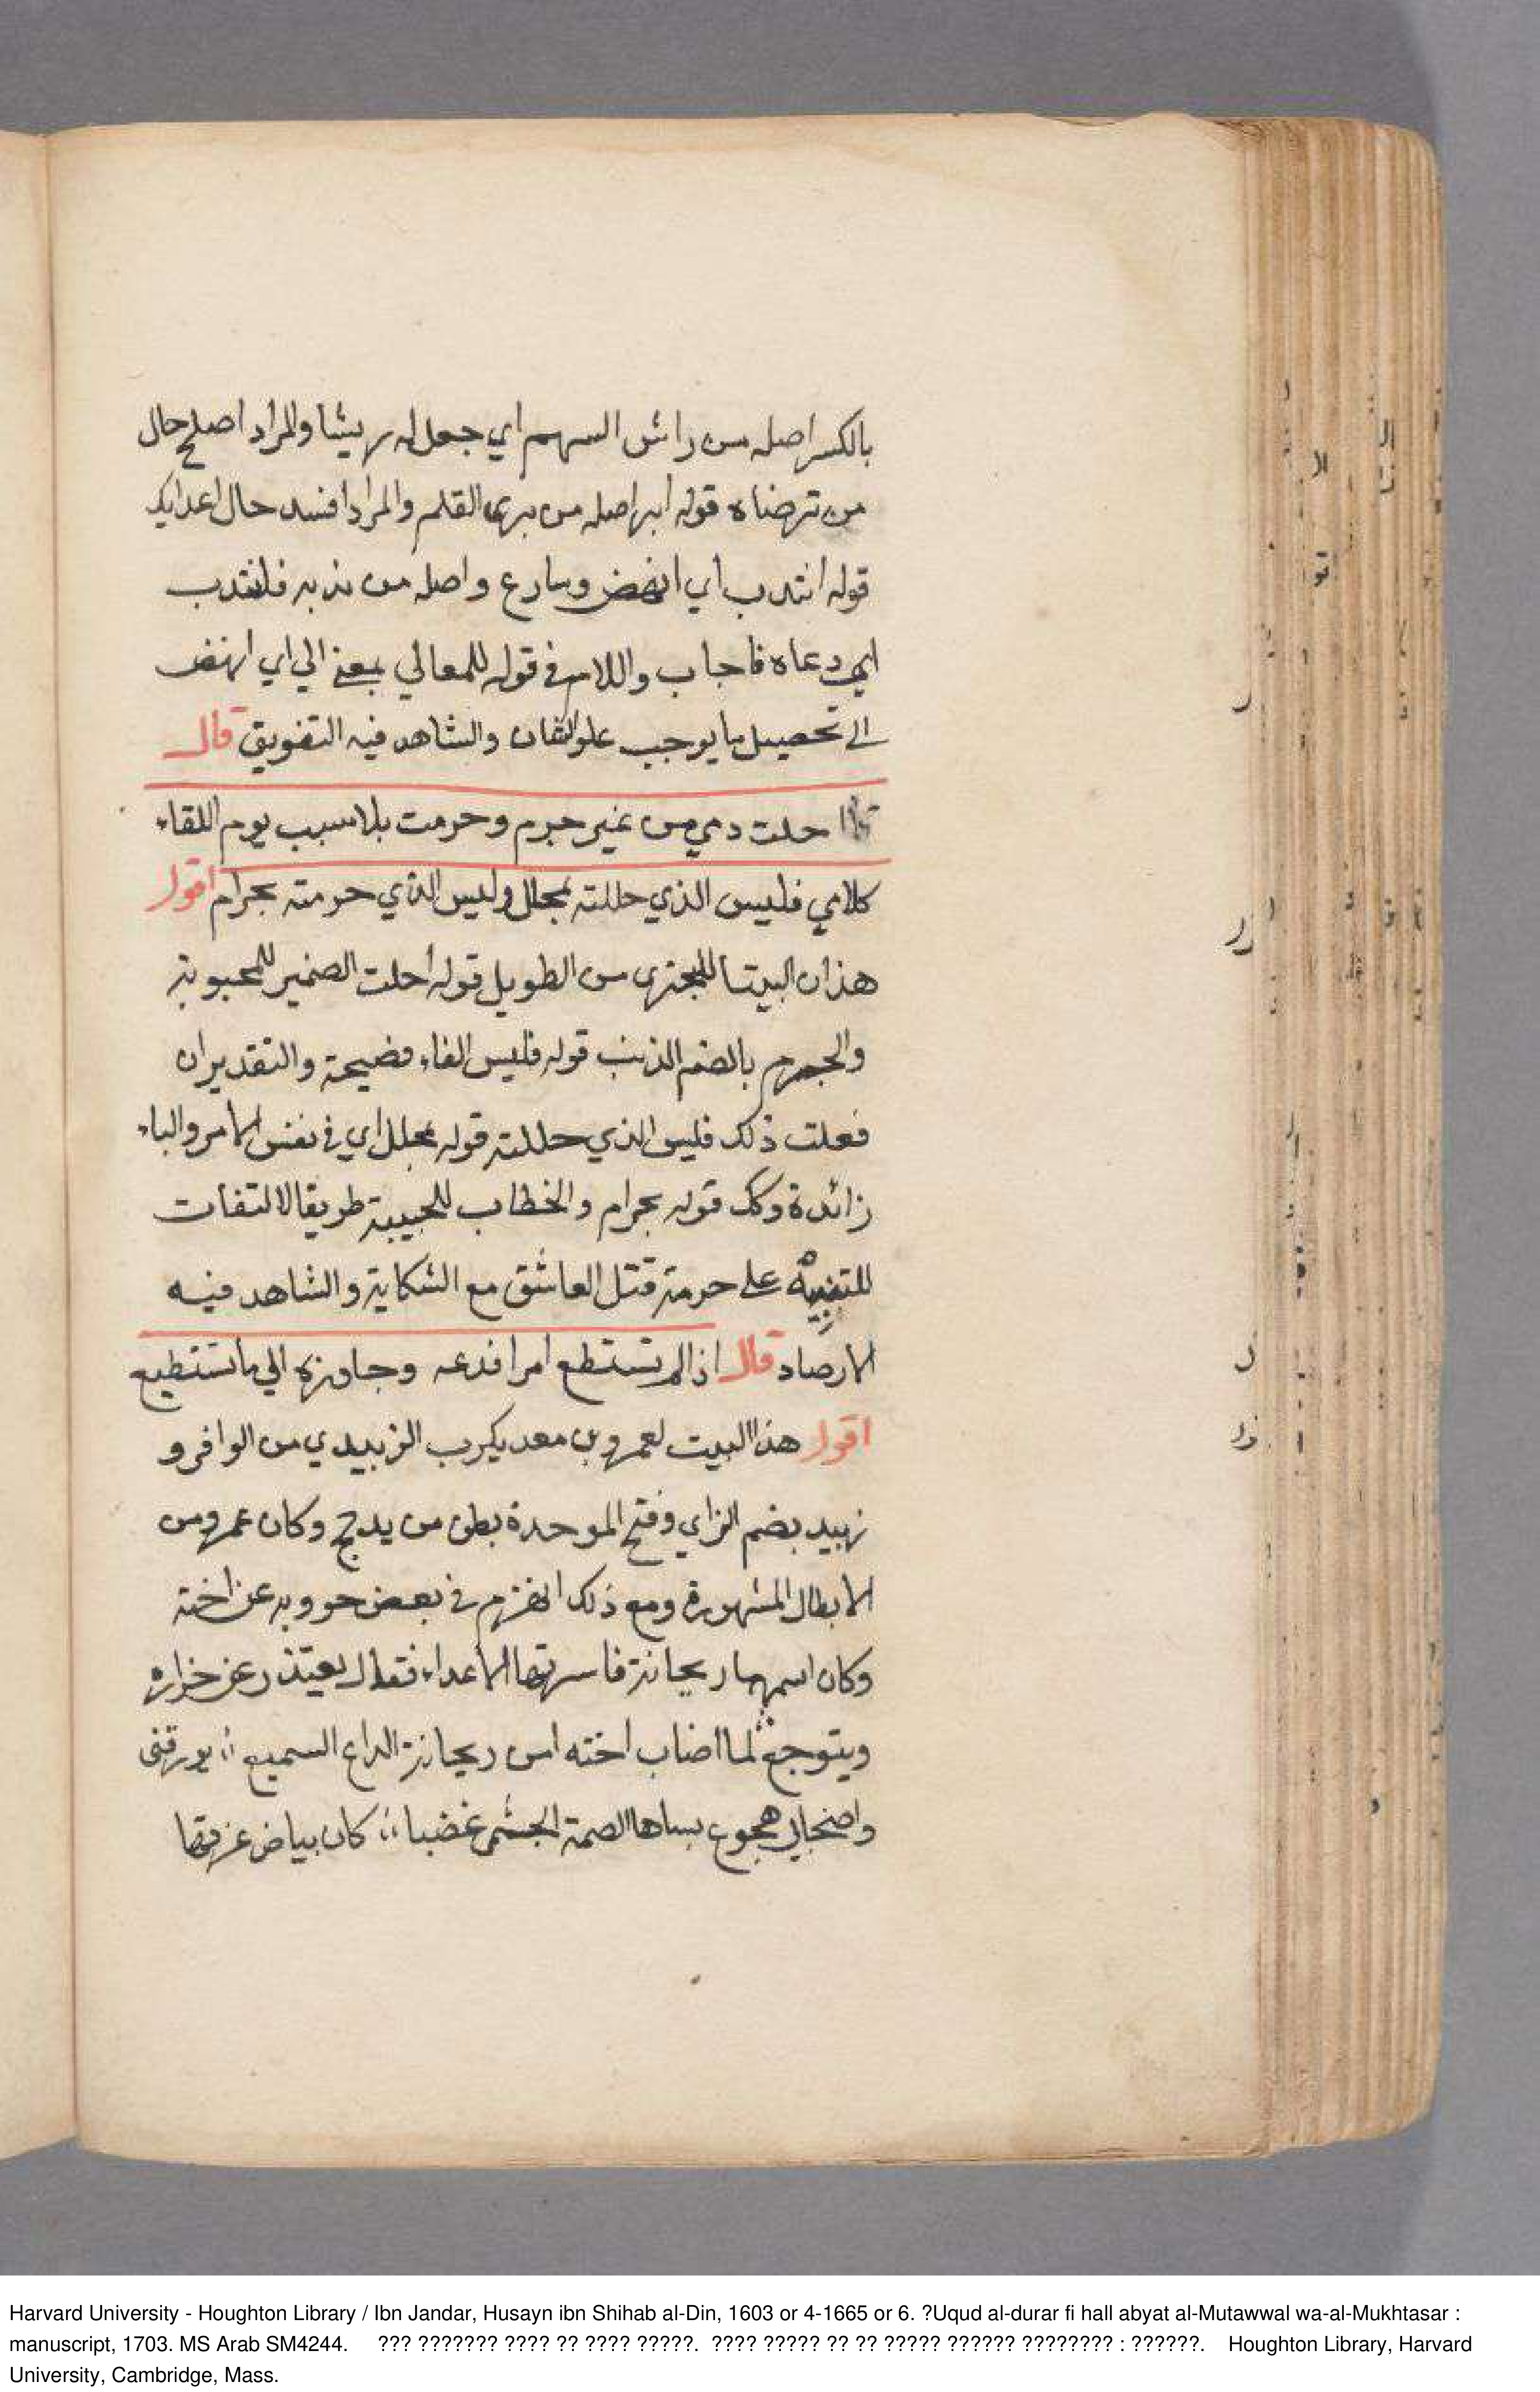 بالكسر اصله من راش السهم اي جعل له ريشا والمراد اصلح حال
من ترضاه قوله ابر اصله من برى القلم والمراد افسد حال اعدايك
قوله انتدب اي انهض وسارع واصله من ندبه فانتدب
اي دعاه فاجاب واللام في قوله للمعالي بمعنى الي اي انهض
الى تحصيل ما يوجب علو الشان والشاهد فيه التفويق قال
حلت دمي من غير جرم وحرمت بلا سبب يوم اللقاء
كلامي فليس الذي حللته بمحلل وليس الذي حرمته بحرام اقول
هذان البيتا للبحتري من الطويل قوله احلت الضمير للمحبوبة
والجرم بالضم الذنب قوله فليس الفاء فضيحة والتقدير ان
فعلت ذلك فليس الذي حللته قوله بمحلل اي في نفس الامر والباء
زائدة وكك قوله بحرام والخطاب للحبيبة طريقا لالتفات
للتنبيه على حرمة قتل العاشق مع الشكاية والشاهد فيه
الارصاد قال اذا لم تستطع امرا فدعه وجاوزه الي ما تستطيع
اقول هذا البيت لعمرو بن معد يكرب الزبيدي من الوافر و
زبيد بضم الزاي وفتح الموحدة بطن من يدحج وكان عمرو من
الابطال المشهورة ومع ذلك انهزم في بعض حروبه عن اخته
وكان اسمها ريحانة فاسرتها الاعداء فقال يعتذر عن فراره
ويتوجع لما اصاب اخته امن ريحانة الداع السميع يورقني
واصحابي هجوع سباها الصمة الجشمي غضبا كان بياض غرتها
Harvard University - Houghton Library / Ibn Jandar, Husayn ibn Shihab al-Din, 1603 or 4-1665 or 6. ?Uqud al-durar fi hall abyat al-Mutawwal wa-al-Mukhtasar :
manuscript, 1703. MS Arab SM4244. ??? ??????? ???? ?? ???? ?????. ???? ????? ?? ?? ????? ?????? ???????? : ??????. Houghton Library, Harvard
University, Cambridge, Mass.